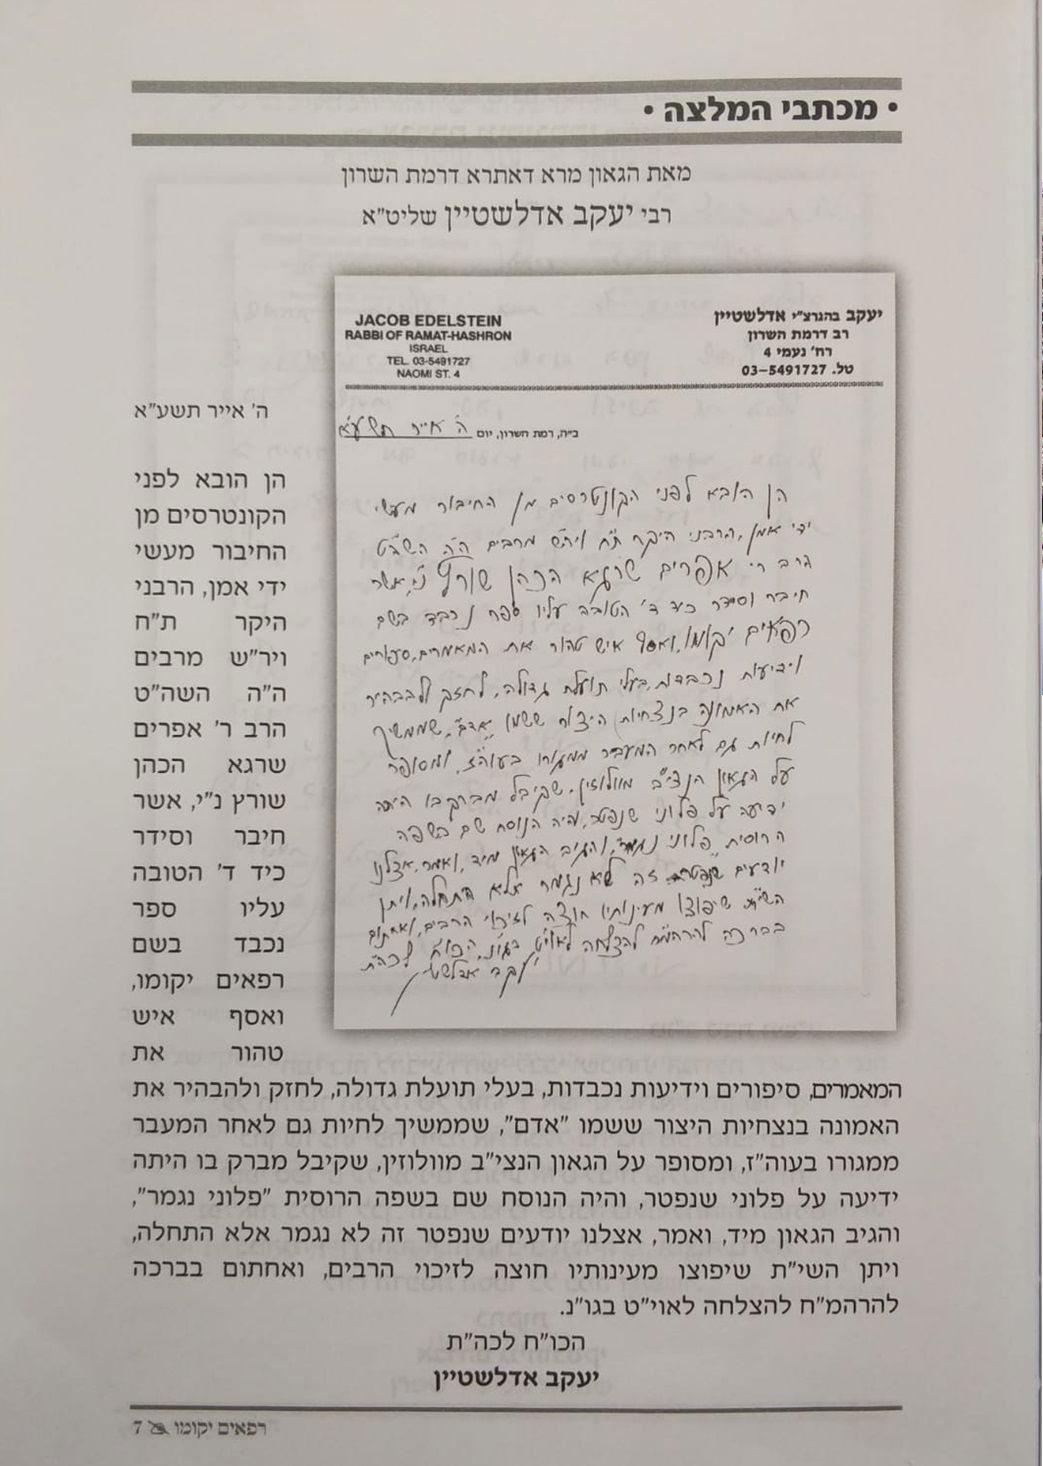 • מכתבי המלצה •
מאת הגאון מרא דאתרא דרמת השרון
רבי יעקב אדלשטיין שליט"א
JACOB EDELSTEIN
RABBI OF RAMAT-HASHRON
ISRAEL
TEL. 03-5491727
NAOMI ST. 4
יעקב בהגרצ"י אדלשטיין
רב דרמת השרון
רח' נעמי 4
טל. 03-5491727
ב"ה, רמת השרון, יום ה' אייר תשע"א
הן הובא לפני הקונטרסים מן החיבור מעשי
ידי אמן, הרבני היקר ת"ח ויר"ש מרבים ה"ה השה"ט
הרב ר' אפרים שרגא הכהן שורץ נ"י, אשר
חיבר וסידר כיד ד' הטובה עליו ספר נכבד בשם
רפאים יקומו, ואסף איש טהור את המאמרים, סיפורים
וידיעות נכבדות, בעלי תועלת גדולה, לחזק ולהבהיר
את האמונה בנצחיות היצור ששמו "אדם", שממשיך
לחיות גם לאחר המעבר ממגורו בעוה"ז, ומסופר
על הגאון הנצי"ב מוולוזין, שקיבל מברק בו היתה
ידיעה על פלוני שנפטר, והיה הנוסח שם בשפה
הרוסית "פלוני נגמר", והגיב הגאון מיד, ואמר, אצלנו
יודעים שנפטר זה לא נגמר אלא התחלה, ויתן
השי"ת שיפוצו מעינותיו חוצה לזיכוי הרבים, ואחתום
בברכה להרהמ"ח להצלחה לאוי"ט בגו"נ, הכו"ח לכה"ת
יעקב אדלשטיין
ה' אייר תשע"א
הן הובא לפני
הקונטרסים מן
החיבור מעשי
ידי אמן, הרבני
היקר ת"ח
ויר"ש מרבים
ה"ה השה"ט
הרב ר' אפרים
שרגא הכהן
שורץ נ"י, אשר
חיבר וסידר
כיד ד' הטובה
עליו ספר
נכבד בשם
רפאים יקומו,
ואסף איש
טהור את
המאמרים, סיפורים וידיעות נכבדות, בעלי תועלת גדולה, לחזק ולהבהיר את
האמונה בנצחיות היצור ששמו "אדם", שממשיך לחיות גם לאחר המעבר
ממגורו בעוה"ז, ומסופר על הגאון הנצי"ב מוולוזין, שקיבל מברק בו היתה
ידיעה על פלוני שנפטר, והיה הנוסח שם בשפה הרוסית "פלוני נגמר",
והגיב הגאון מיד, ואמר, אצלנו יודעים שנפטר זה לא נגמר אלא התחלה,
ויתן השי"ת שיפוצו מעינותיו חוצה לזיכוי הרבים, ואחתום בברכה
להרהמ"ח להצלחה לאוי"ט בגו"נ.
הכו"ח לכה"ת
יעקב אדלשטיין
רפאים יקומו 7